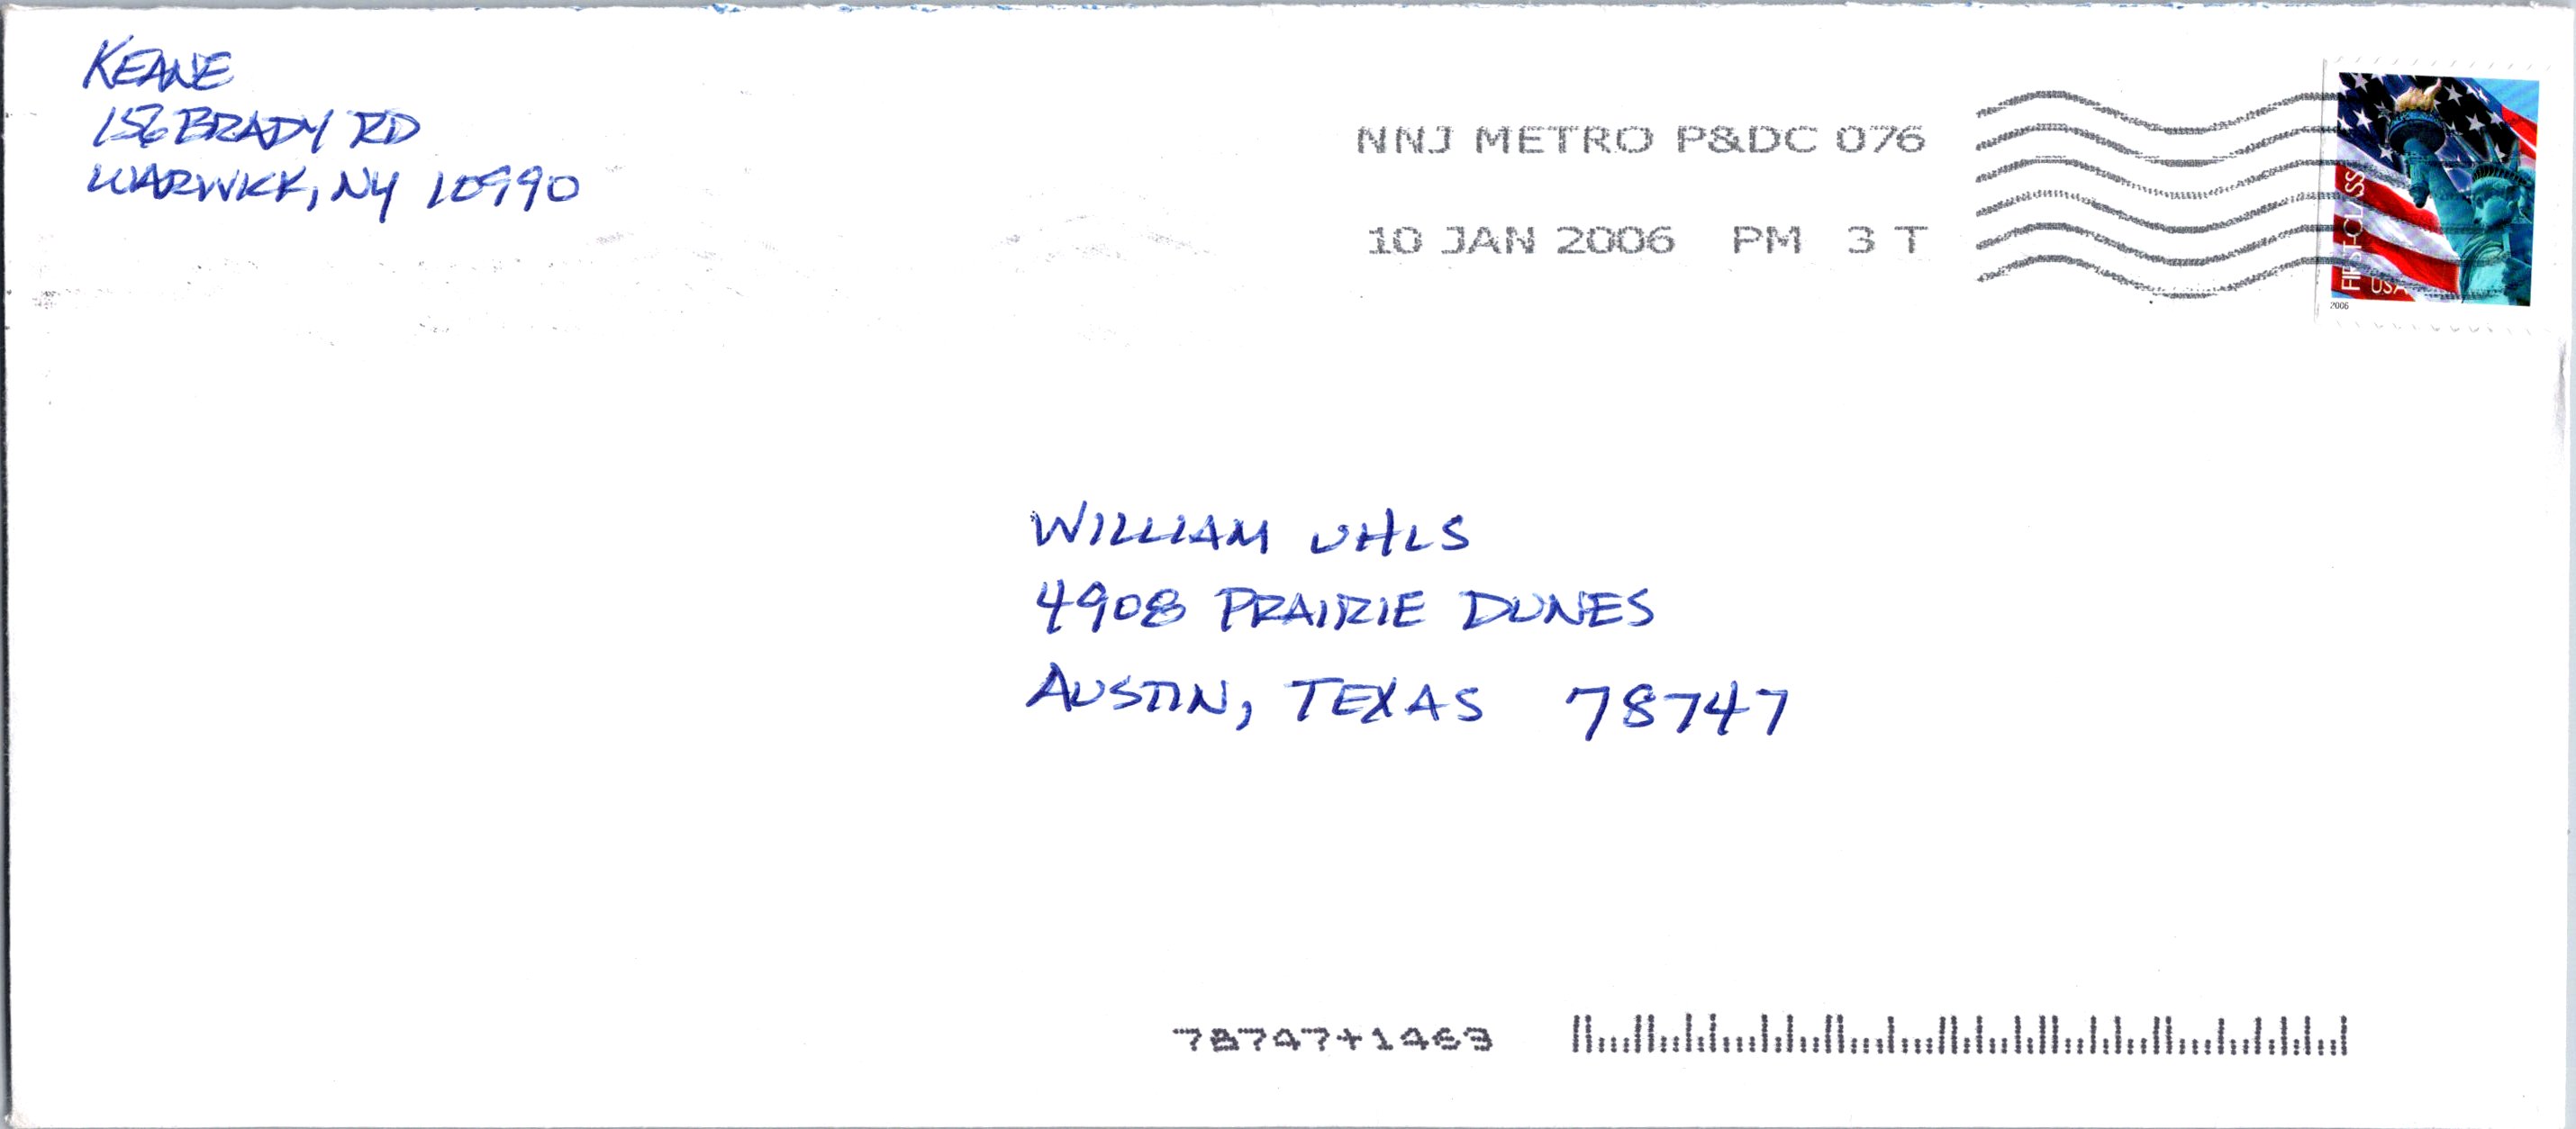 KEANE
156 BRADY RD
WARWICK, NY 10990
NNJ METRO P&DC 076
10 JAN 2006 PM 3 T
FIRST-CLASS
USA
2006
WILLIAM UHLS
4908 PRAIRIE DUNES
AUSTIN, TEXAS 78747
78747+1463